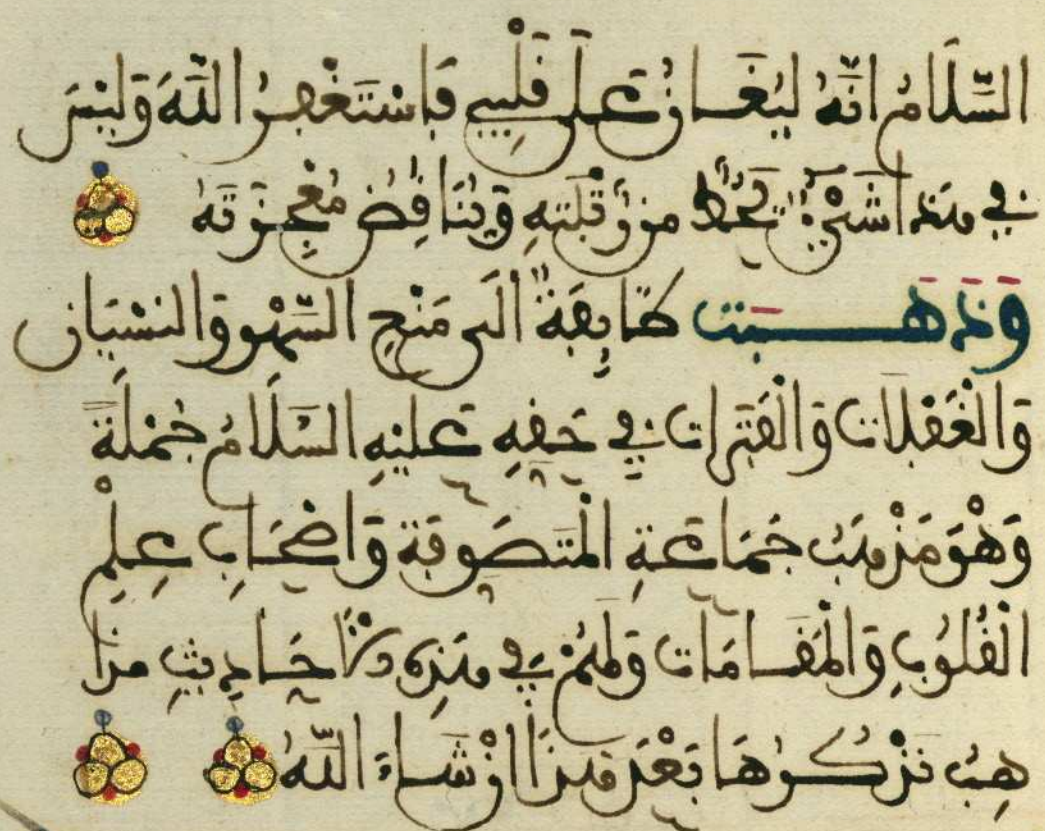 السَّلَامُ اِنَّهُ لَيُغَانُ عَلَى قَلْبِي فَاسْتَغْفِرُ اللَّهَ وَلَيْسَ
فِي هَذَا شَيْءٌ يَحُطُّ مِن رُّتْبَتِهِ وَيُنَاقِضُ مُعْجِزَتَهُ
وَذَهَبَتْ طَايِفَةٌ اِلَى مَنْعِ السَّهْوِ وَالنِّسْيَانِ
وَالْغَفَلَاتِ وَالْفَتَرَاتِ فِي حَقِّهِ عَلَيْهِ السَّلَامُ جُمْلَةً
وَهْوَ مَذْهَبُ جَمَاعَةِ الْمُتَصَوِّفَةِ وَاَصْحَابِ عِلْمِ
الْقُلُوبِ وَالْمَقَامَاتِ وَلَهُمْ فِي هَذِهِ الْاَحَادِيثِ مَذَا
هِبُ نَذْكُرُهَا بَعْدَ هَذَا اِن شَاءَ اللَّهُ